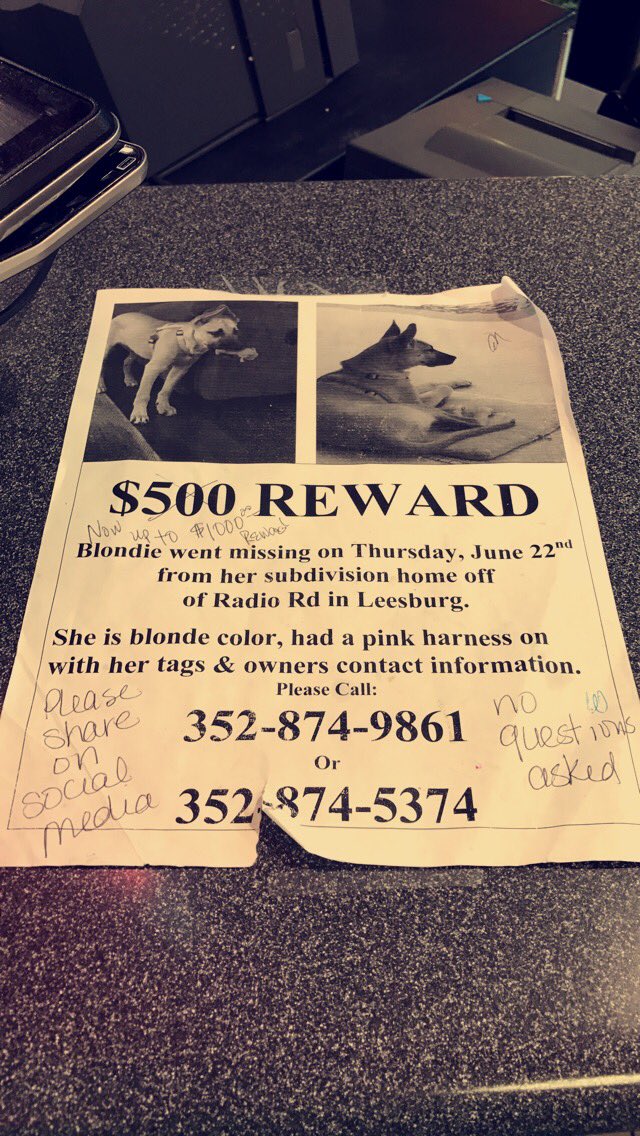 $500 REWARD
Now up to $1000.00 Reward
Blondie went missing on Thursday, June 22nd
from her subdivision home off
of Radio Rd in Leesburg.
She is blonde color, had a pink harness on
with her tags & owners contact information.
Please Call:
352-874-9861
Or
352-874-5374
Please
share
on
social
media
no
questions
asked